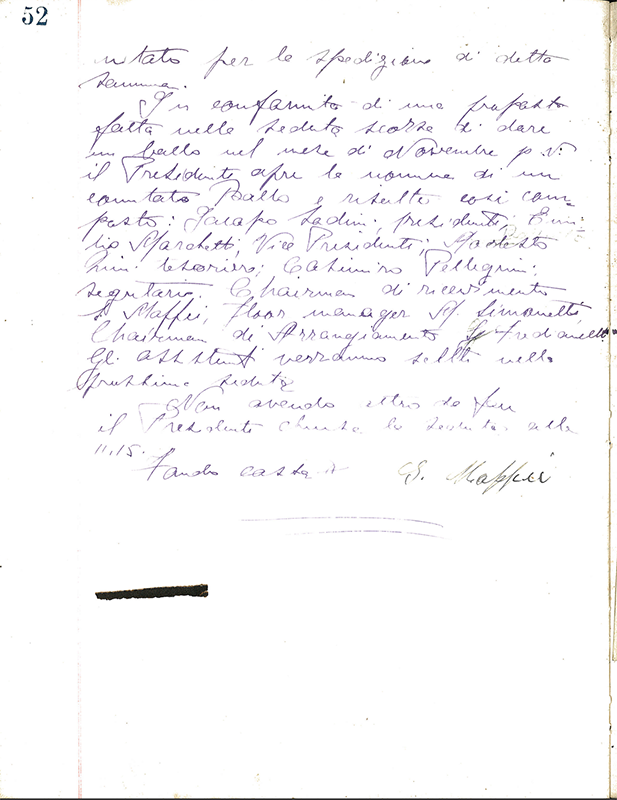 52
mitato per la spedizione di detta
somma.
In conformita di una proposta
fatta nella seduta scorsa di dare
un ballo nel mese di Novembre p.v.
il Presidente apre la nomina di un
comitato Ballo e risulta cosi com-
posto: Jacapo Ladini, presidente; Emi-
lio Marchetti, Vice Presidente; Modesto
tesoriere; Casimiro Pellegrini
segretario. Chairman di ricevimento
Maffei, floor manager Simonetti
Chairman di Arrangiamento
Gl. assistenti verranno scelti nella
prossima seduta
Non avendo altro da fare
il Presidente chiuse la seduta alle
11.15.
Fondo cassa G. Maffei